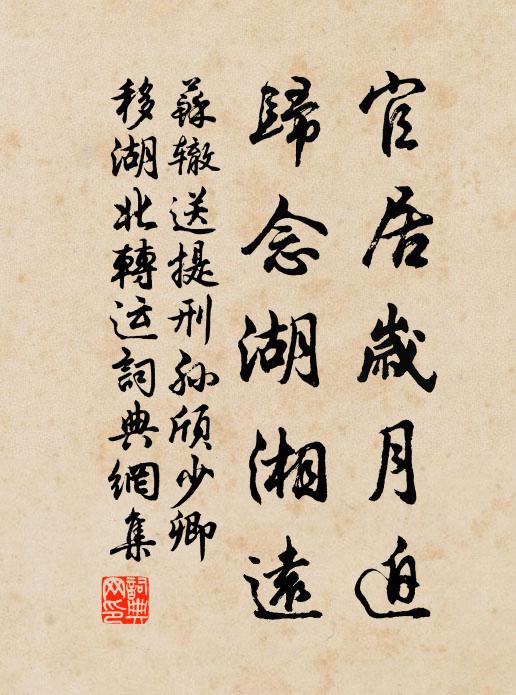 官居歲月迫
歸念湖湘遠
蘇辙送提刑孙頎少卿
移湖北轉运詞典網集
詞典网印